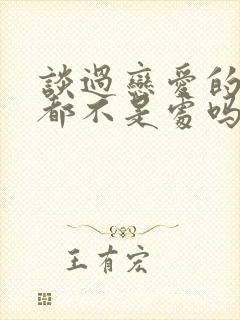 談過戀愛的
都不是處嗎
王有宏